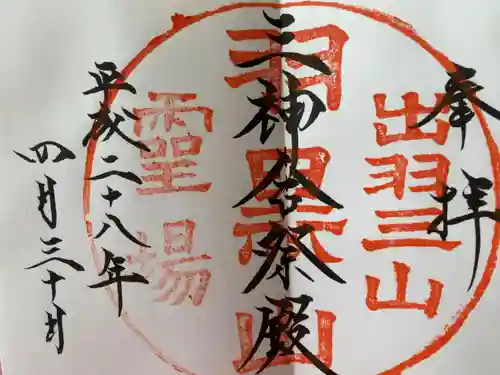 奉拝
出羽三山
三神合祭殿
羽黒山
靈場
平成二十八年
四月三十日